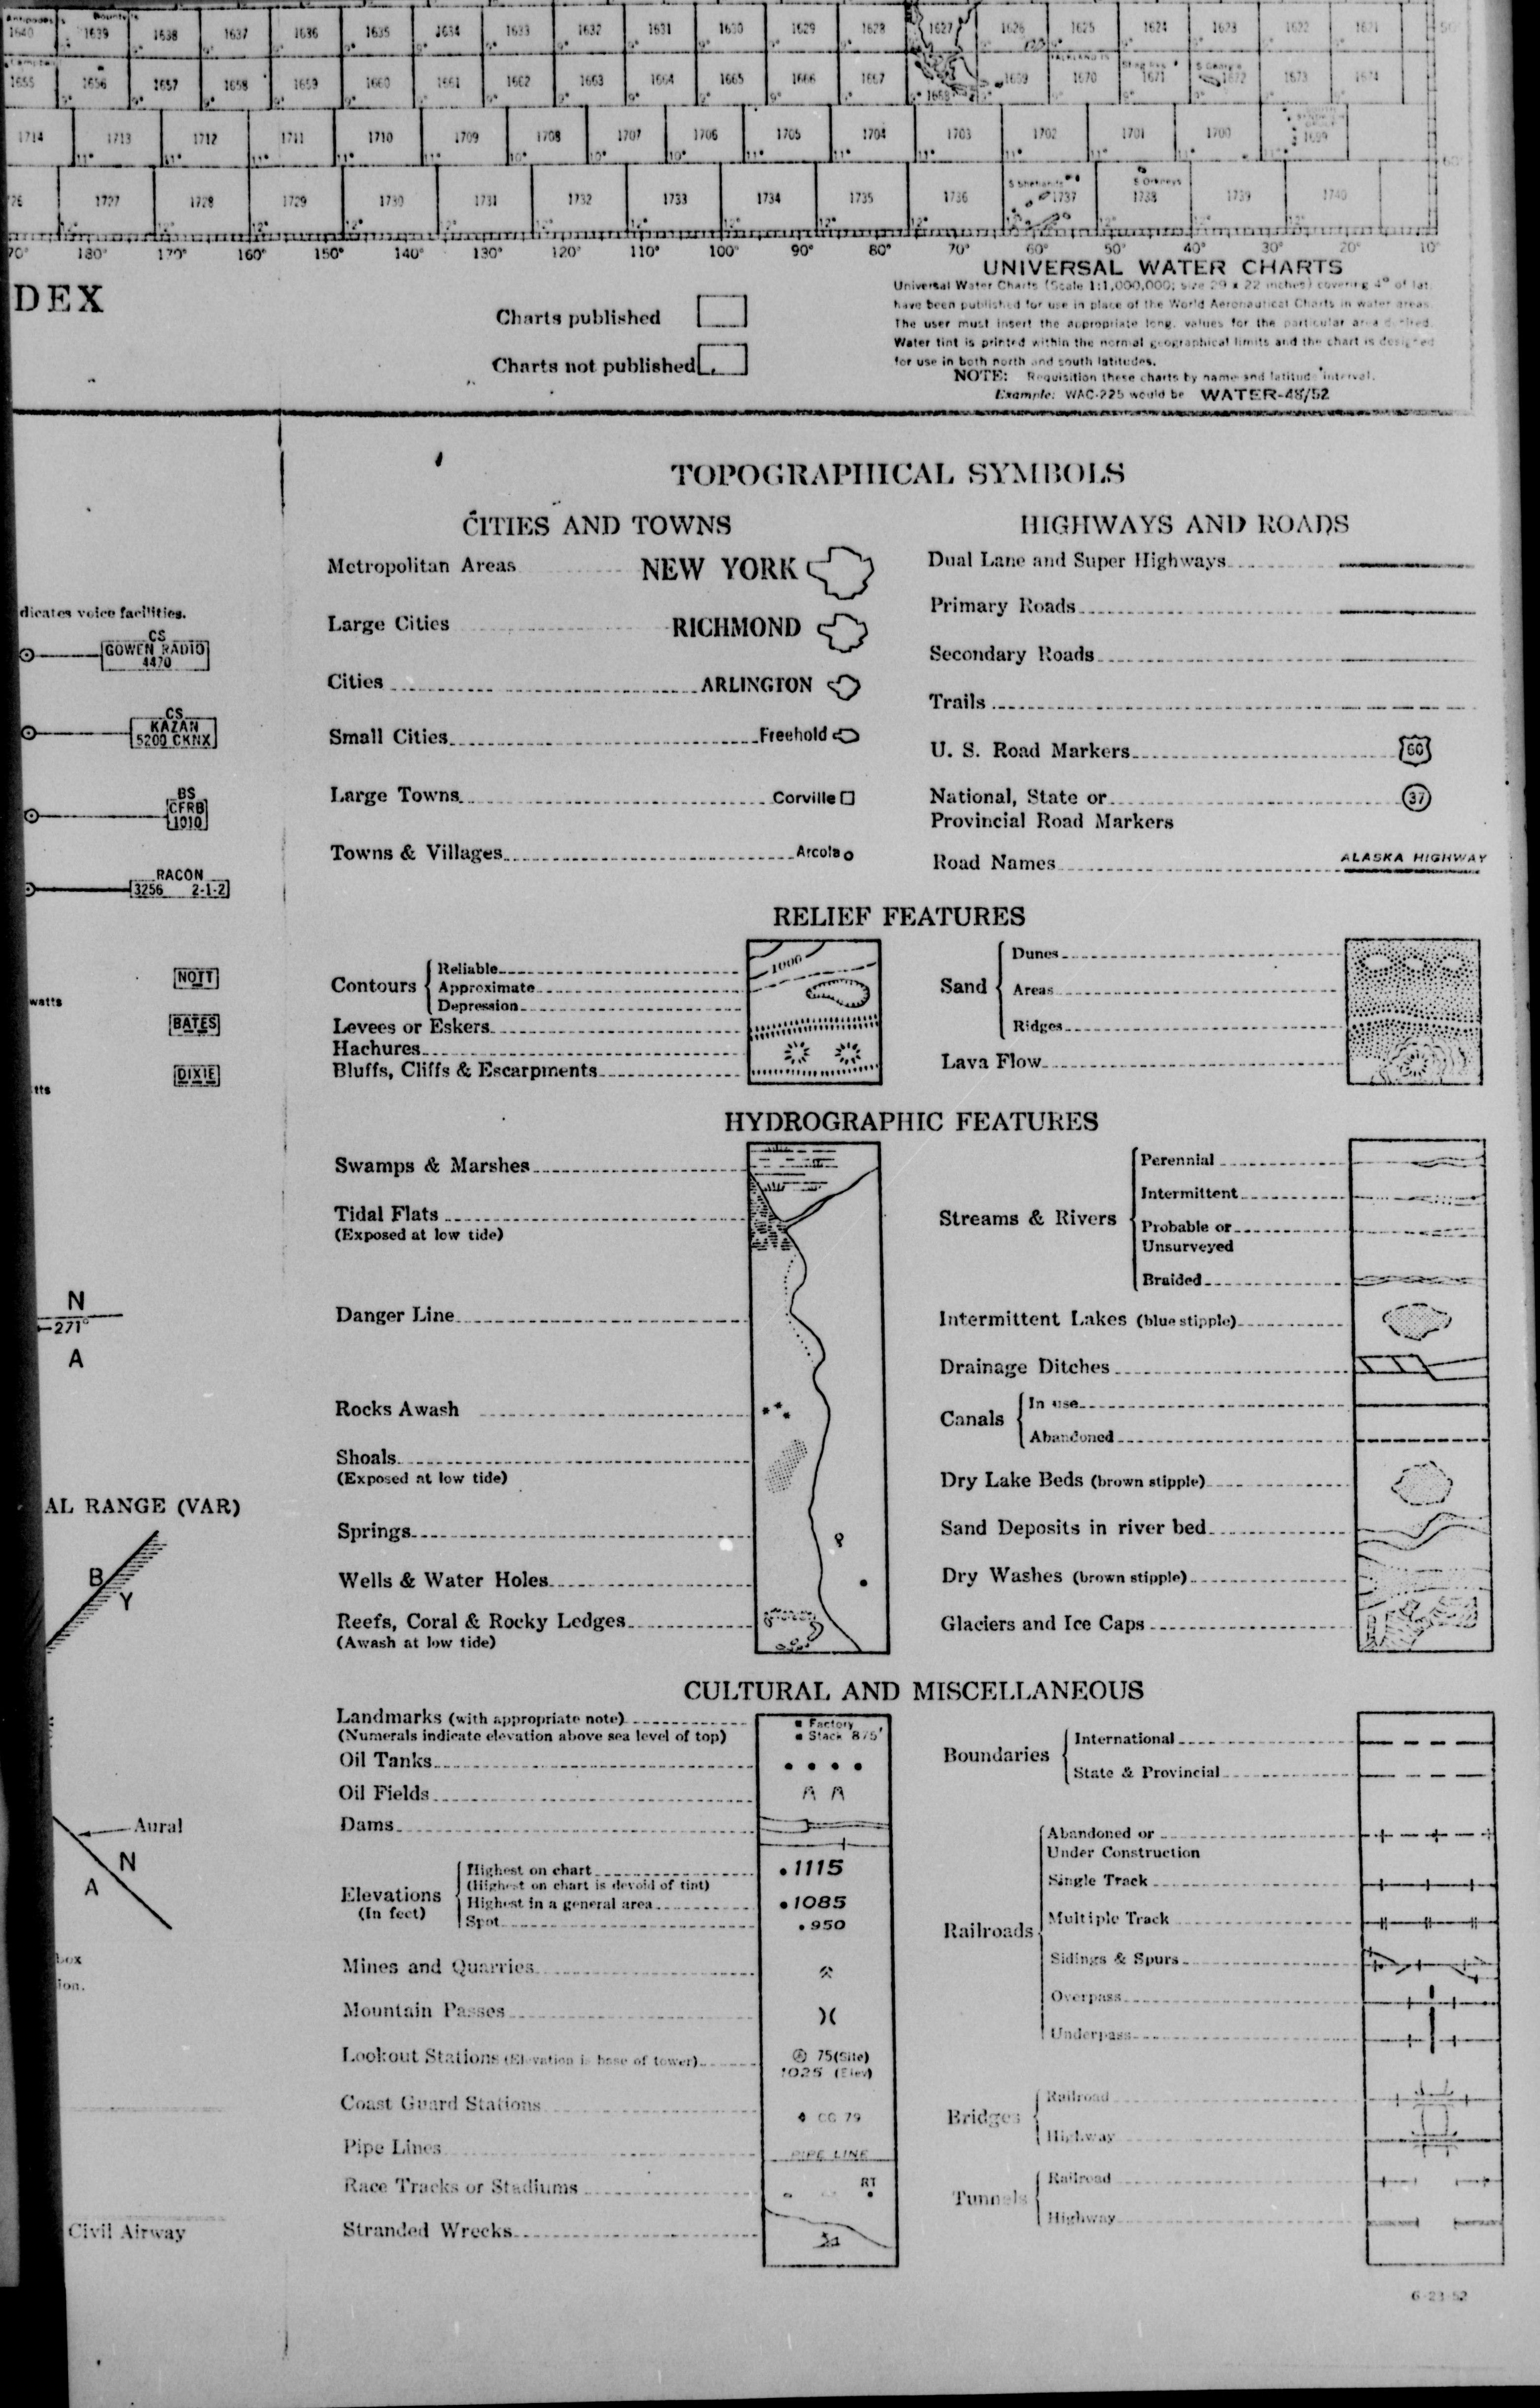 Antipodes Is Bountyls
1640 1639 1638 1637 1636 1635 1634 1633 1632 1631 1630 1629 1628 1627 1626 1625 1624 1623 1622 1621
FALKLAND IS
1655 1656 1657 1658 1659 1660 1661 1662 1663 1664 1665 1666 1667 1668 1669 1670 1671 1672 1673 1674
1714 1713 1712 1711 1710 1709 1708 1707 1706 1705 1704 1703 1702 1701 1700 1699
S Shetlands S Orkneys
26 1727 1728 1729 1730 1731 1732 1733 1734 1735 1736 1737 1738 1739 1740
70° 180° 170° 160° 150° 140° 130° 120° 110° 100° 90° 80° 70° 60° 50° 40° 30° 20° 10°
DEX
Charts published
Charts not published
UNIVERSAL WATER CHARTS
Universal Water Charts (Scale 1:1,000,000; size 29 x 22 inches) covering 4° of lat.
have been published for use in place of the World Aeronautical Charts in water areas.
The user must insert the appropriate long. values for the particular area desired.
Water tint is printed within the normal geographical limits and the chart is designed
for use in both north and south latitudes.
NOTE: Requisition these charts by name and latitude interval.
Example: WAC-225 would be WATER-48/52
dicates voice facilities.
CS
GOWEN RADIO
4470
CS
KAZAN
5200 CKNX
BS
CFRB
1010
RACON
3256 2-1-2
NOTT
watts
BATES
DIXIE
tts
N
271°
A
AL RANGE (VAR)
B
Y
Aural
N
A
box
ion.
Civil Airway
TOPOGRAPHICAL SYMBOLS
CITIES AND TOWNS
Metropolitan Areas NEW YORK
Large Cities RICHMOND
Cities ARLINGTON
Small Cities Freehold
Large Towns Corville
Towns & Villages Arcola
HIGHWAYS AND ROADS
Dual Lane and Super Highways
Primary Roads
Secondary Roads
Trails
U. S. Road Markers 60
National, State or 37
Provincial Road Markers
Road Names ALASKA HIGHWAY
RELIEF FEATURES
Contours
Reliable
Approximate
Depression
1000
Levees or Eskers
Hachures
Bluffs, Cliffs & Escarpments
Sand
Dunes
Areas
Ridges
Lava Flow
HYDROGRAPHIC FEATURES
Swamps & Marshes
Tidal Flats
(Exposed at low tide)
Danger Line
Rocks Awash
Shoals
(Exposed at low tide)
Springs
Wells & Water Holes
Reefs, Coral & Rocky Ledges
(Awash at low tide)
Streams & Rivers
Perennial
Intermittent
Probable or
Unsurveyed
Braided
Intermittent Lakes (blue stipple)
Drainage Ditches
Canals
In use
Abandoned
Dry Lake Beds (brown stipple)
Sand Deposits in river bed
Dry Washes (brown stipple)
Glaciers and Ice Caps
CULTURAL AND MISCELLANEOUS
Landmarks (with appropriate note) Factory
(Numerals indicate elevation above sea level of top) Stack 875'
Oil Tanks
Oil Fields
Dams
Elevations
(In feet)
Highest on chart 1115
(Highest on chart is devoid of tint)
Highest in a general area 1085
Spot 950
Mines and Quarries
Mountain Passes
Lookout Stations (Elevation is base of tower) 75(Site)
1025 (Elev)
Coast Guard Stations CG 79
Pipe Lines PIPE LINE
Race Tracks or Stadiums RT
Stranded Wrecks
Boundaries
International
State & Provincial
Railroads
Abandoned or
Under Construction
Single Track
Multiple Track
Sidings & Spurs
Overpass
Underpass
Bridges
Railroad
Highway
Tunnels
Railroad
Highway
6-23-52